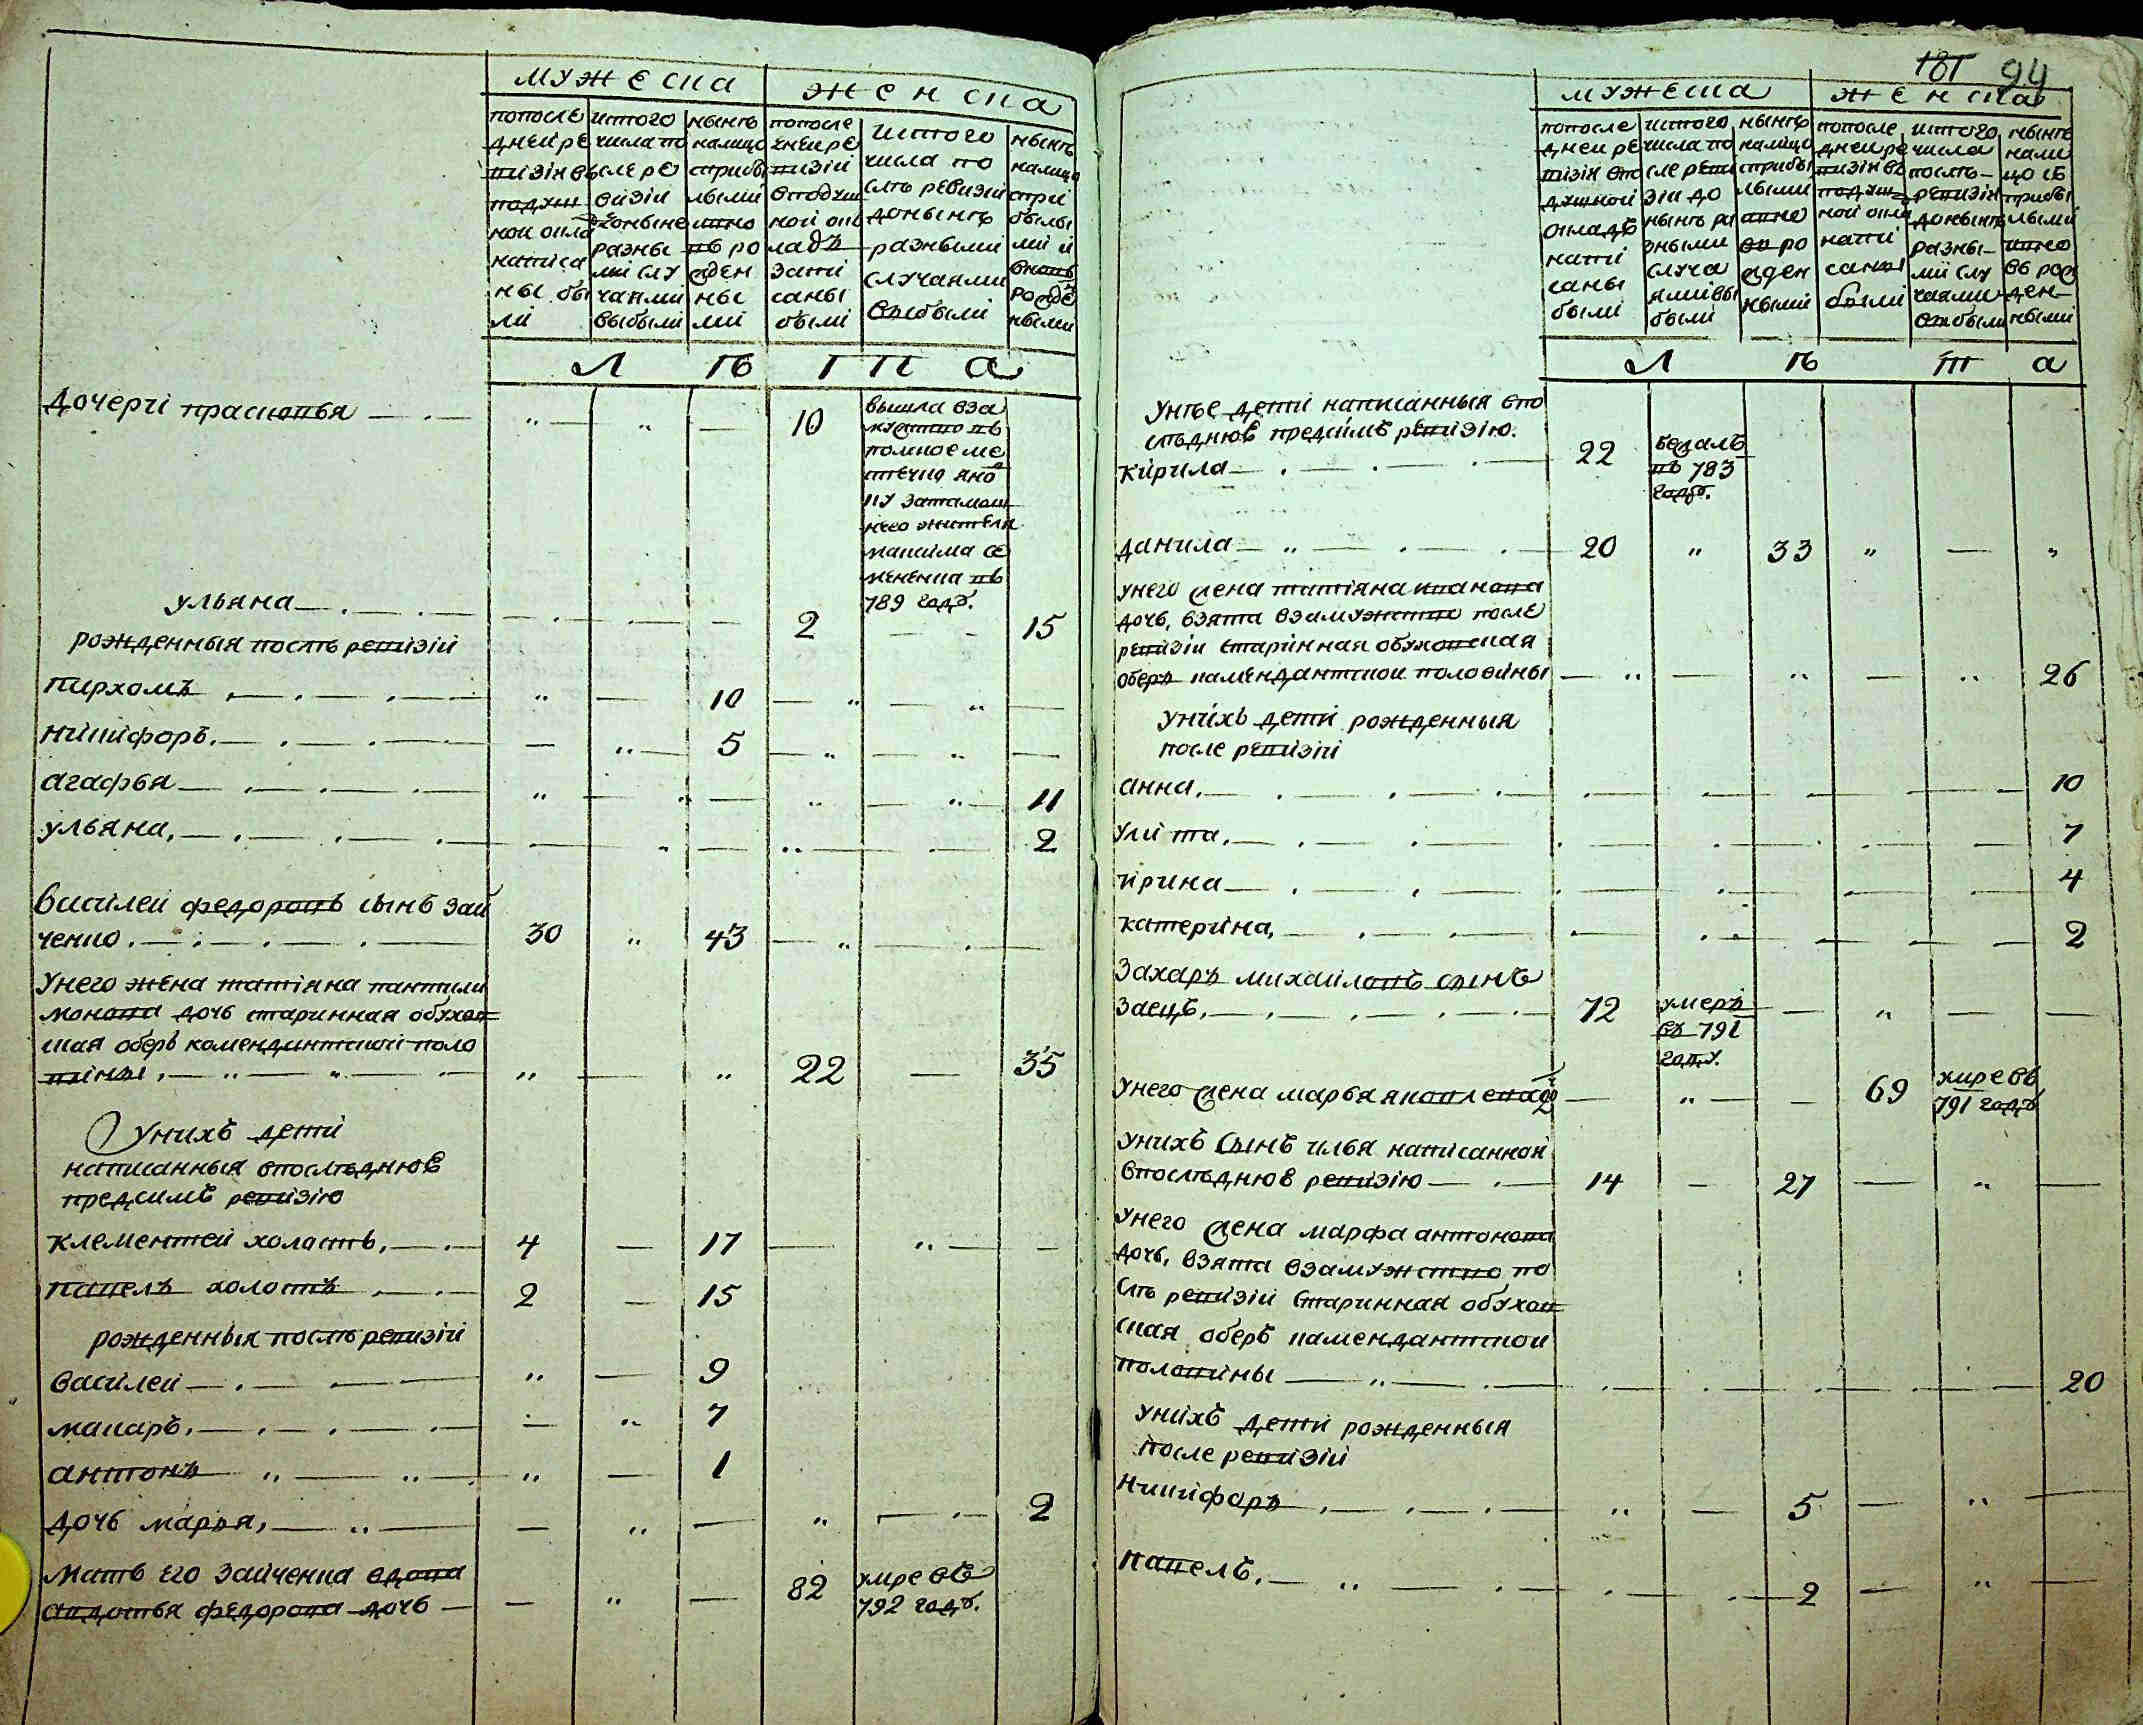 мужеска
женска
попосле
дней ре
визіи въ
подуш
ной окла
написа
ны бы
ли
истого
числа по
сле ре
визіи
доныне
разны
ми слу
чаями
выбыли
нынѣ
налицо
сприбы
лыми
вно
въ ро
жден
ны
ми
попосле
дней ре
визіи
вподуш
ной ок
ладъ
запи
саны
были
истого
числа по
слѣ ревизіи
донынѣ
разными
случаями
выбыли
нынѣ
налицо
спри
былы
ми и
вновь
рожде
ными
лѣта
дочери прасковья 10
вышла вза
мужство въ
полное ме
стечко яно
ку затамош
него жителя
максима се
мененка въ
789 годѣ.
ульяна 2 15
рожденныя послѣ ревизіи
пархомъ 10
никифоръ. 5
агафья 11
ульяна, 2
василеи федоровъ сынъ зай
ченко. 30 43
унего жена татіяна пантили
монова дочь старинная обухов
ская оберъ комендантской поло
вины, 22 35
унихъ дети
написанныя впослѣднюю
предсимъ ревизію
клементей холостъ, 4 17
павелъ холостъ 2 15
рожденныя послѣ ревизіи
василеи 9
макаръ, 7
антонъ 1
дочь марья, 2
мать его зайченка вдова
авдотья федорова дочь 82
умре въ
792 годѣ.
181 94
мужеска
женска
попосле
дней ре
визіи впо
душной
окладъ
напи
саны
были
истого
числа по
сле реви
зіи до
нынѣ ра
зными
случа
ями вы
были
нынѣ
налицо
сприбы
лыми
вно
въ ро
жден
ными
попосле
дней ре
визіи въ
подуш
ной окла
напи
саны
были
истого
числа
послѣ
ревизіи
донынѣ
разны
ми слу
чаями
выбыли
нынѣ
нали
цо съ
прибы
лыми
вно
въ рож
ден
ными
лѣта
унее дети написанныя впо
слѣднюю предсимъ ревизію.
кирила 22
бежалъ
въ 783
годѣ.
данила 20 33
унего жена татіяна иванова
дочь, взята взамужство после
ревизіи старинная обуховская
оберъ камендантской половины 26
унихъ дети рожденныя
после ревизіи
анна, 10
улита, 7
ирина 4
катерина, 2
захаръ михаиловъ сынъ
заецъ, 72
умеръ
въ 791
году.
унего жена марья яковлева 69
умре въ
791 годѣ
унихъ сынъ илья написанной
впослѣднюю ревизію 14 27
унего жена марфа антонова
дочь, взята взамужство по
слѣ ревизіи старинная обухов
ская оберъ камендантской
половины 20
унихъ дети рожденныя
после ревизіи
никифоръ 5
павелъ, 2